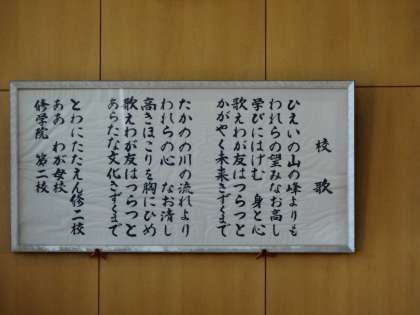 校歌
ひえいの山の峰よりも
われらの望みなお高し
学びにはげむ 身と心
歌えわが友はつらつと
かがやく未来きずくまで
たかのの川の流れより
われらの心 なお清し
高きほこりを胸にひめ
歌えわが友はつらつと
あらたな文化きずくまで
とわにたたえん修二校
ああ わが母校
修学院 第二校